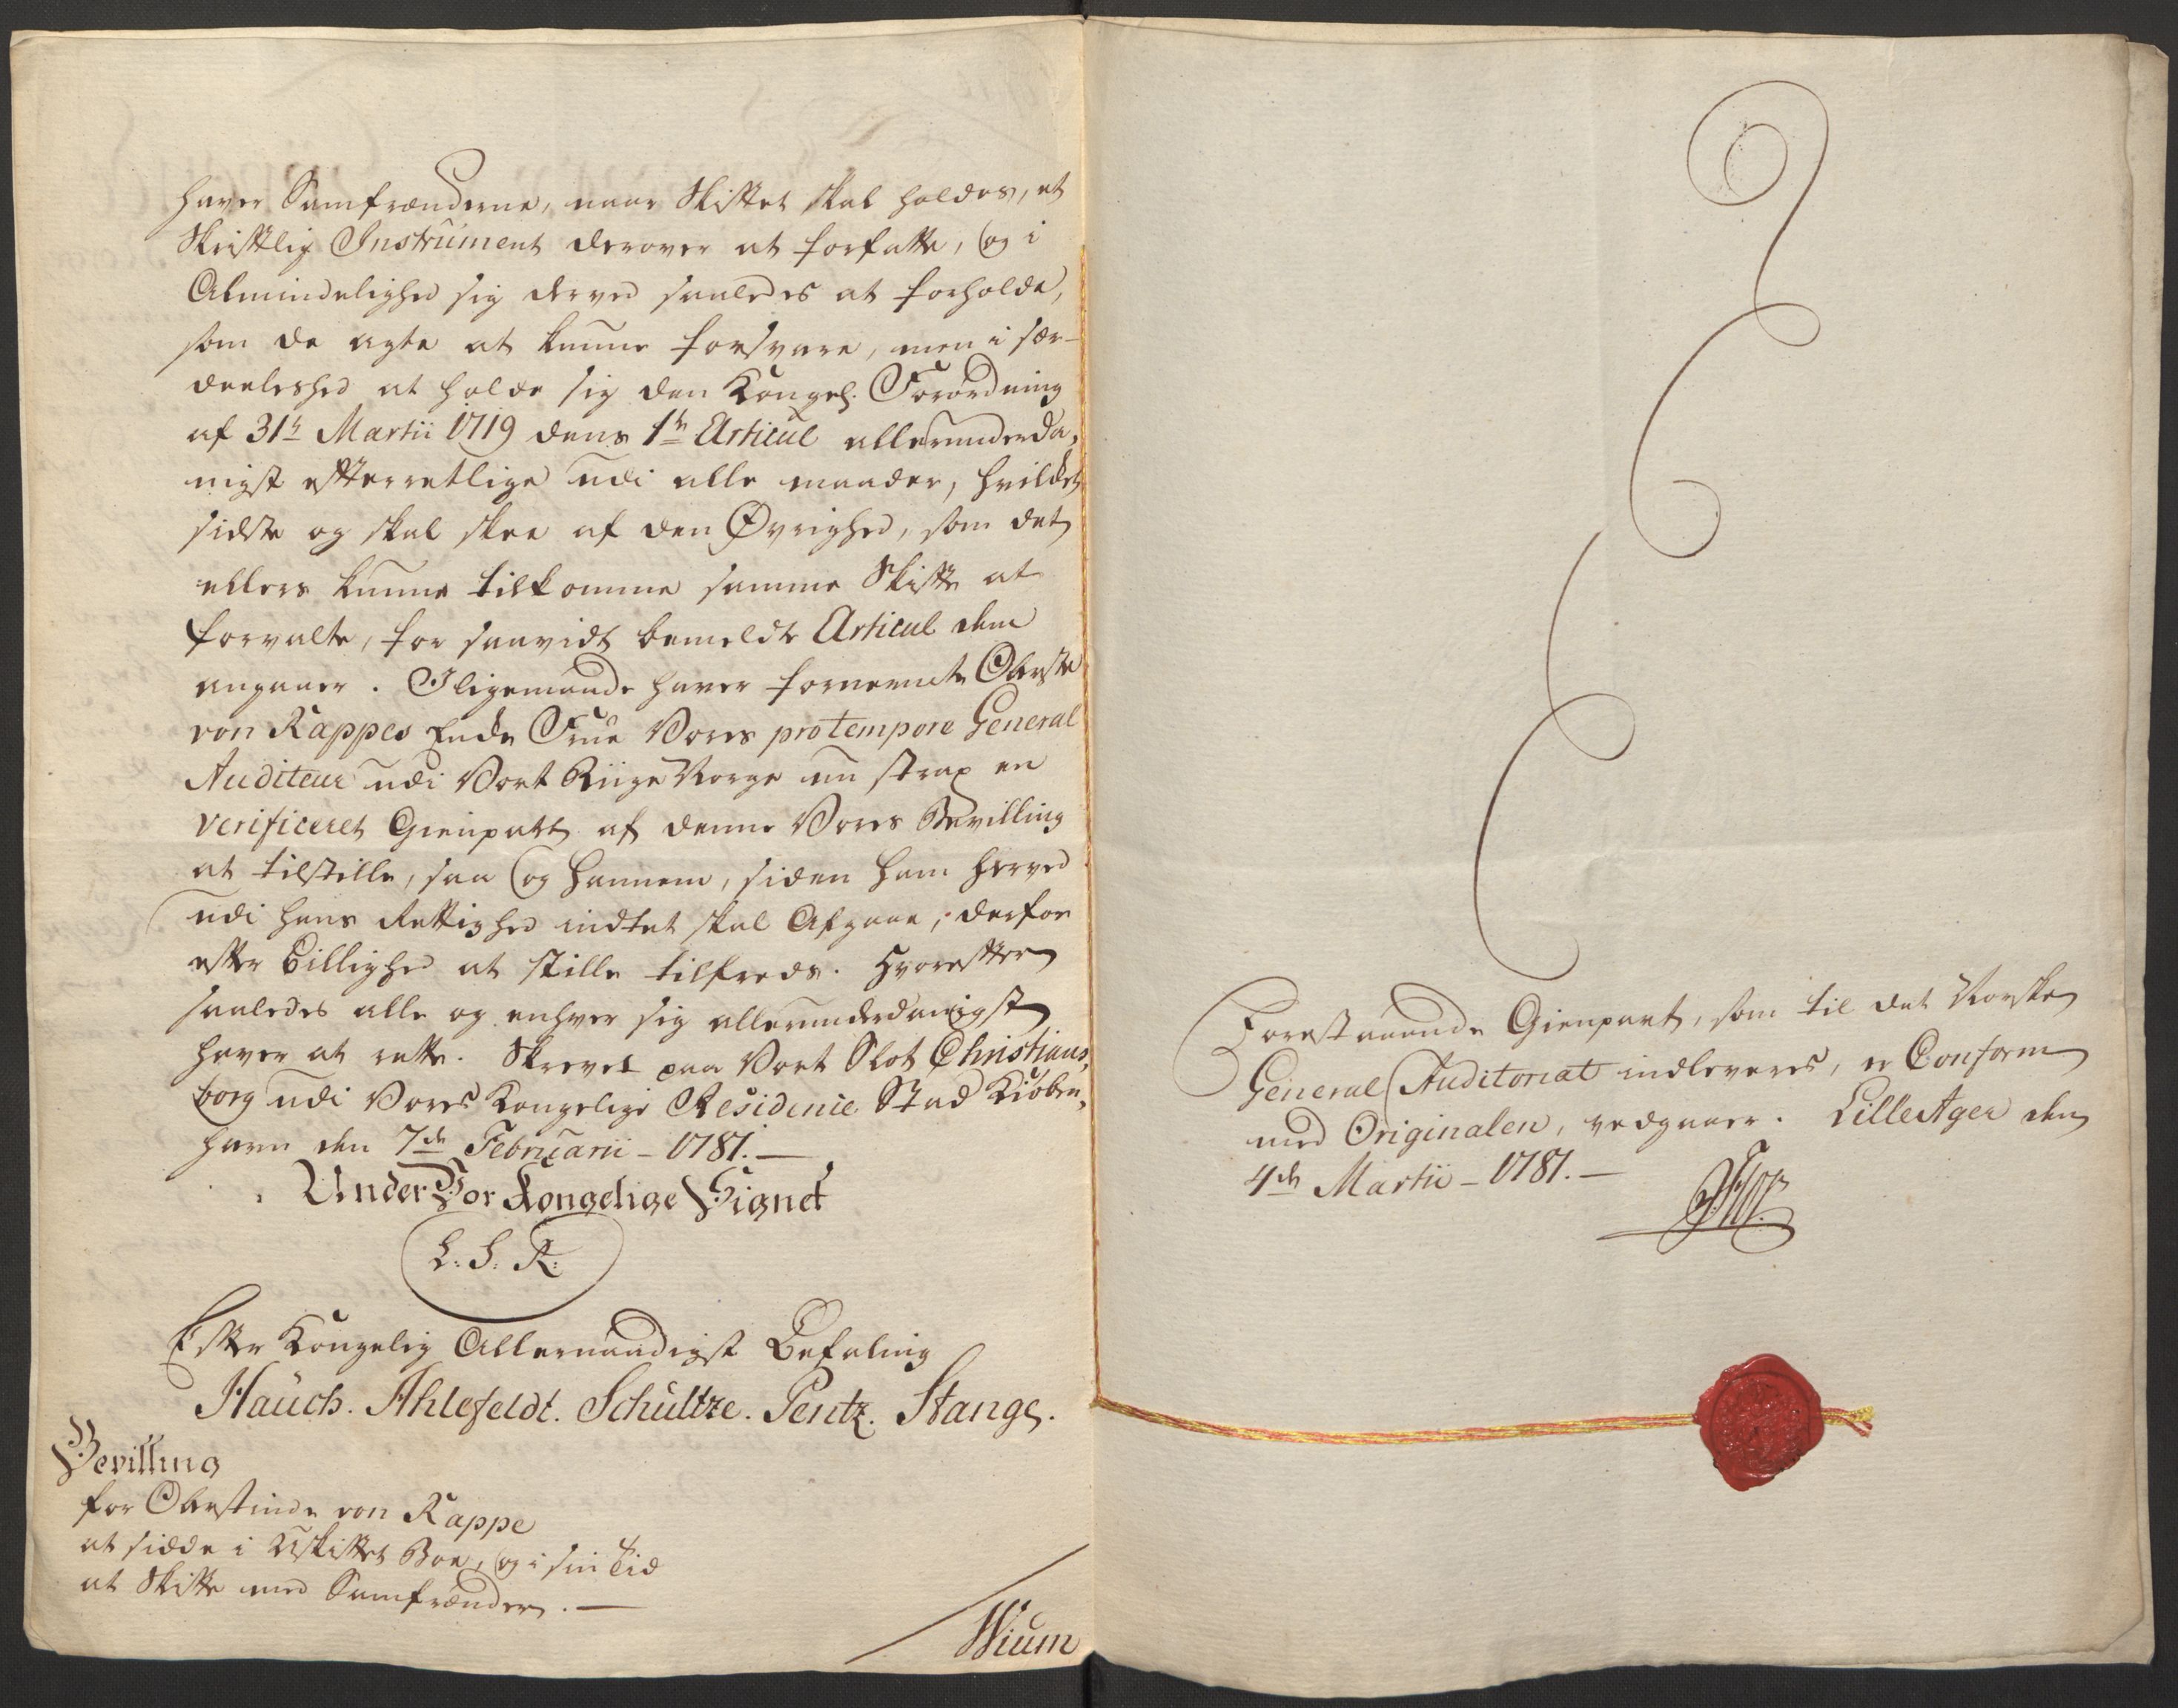 haver Samfrænderne, naar Skiftet skal holdes, et
Skriftlig Instrument derover at forfatte, og i
Almindelighed sig derved saaledes at forholde,
som de agte at kunne forsvare, men i sær-
deeleshed at holde sig den Kongel. Forordning
af 31te Martii 1719 dens 1te Articul allerunderda,
nigst efterretlige udi alle maader, hvilket
sidste og skal skee af den Øvrighed, som det
ellers kunne tilkomme samme Skifte at
forvalte, for saavidt bemeldte Articul dem
angaaer. Iligemaade haver fornevnte Oberste
von Kappes Ende Frue Vores pro tempore General
Auditeur udi Vort Riige Norge nu strax en
verificeret Gienpart af denne Vores Bevilling
at tilstille, saa og hannem, siden ham herved
udi hans Rettighed indtet skal Afgaae, derfor
efter Billighed at stille tilfreds. Hvorefter
saaledes alle og enhver sig allerunderdanigst
haver at rette. Skrevet paa Vort Slot Christians,
borg udi Vores Kongelige Residence Stad Kiøben,
havn den 7de Februarii - 1781. —
Under Vor Kongelige Signet
L. S. R.
Efter Kongelig Allernaadigst Befaling
Hauch. Ahlefeldt. Schultze. Pentz. Stange.
Bevilling
for Oberstinde von Kappe
at sidde i Uskiftet Boe, og i sin Tid
at Skifte med Samfrænder. —
Wium
Forestaaende Gienpart, som til det Norske
General Auditoriat indleveres, er Conform
med Originalen, vedgaaer. Lille Ager den
4de Martii - 1781. —